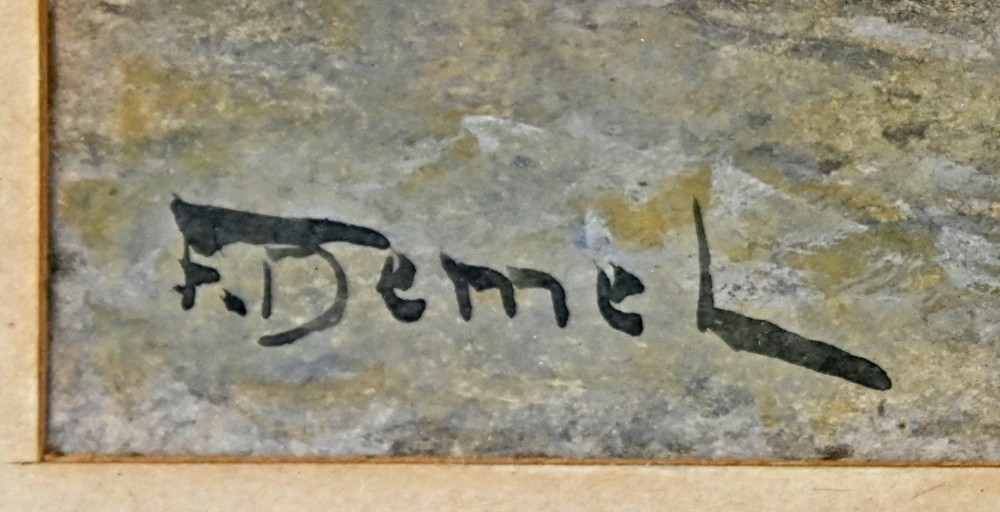 F. Demel